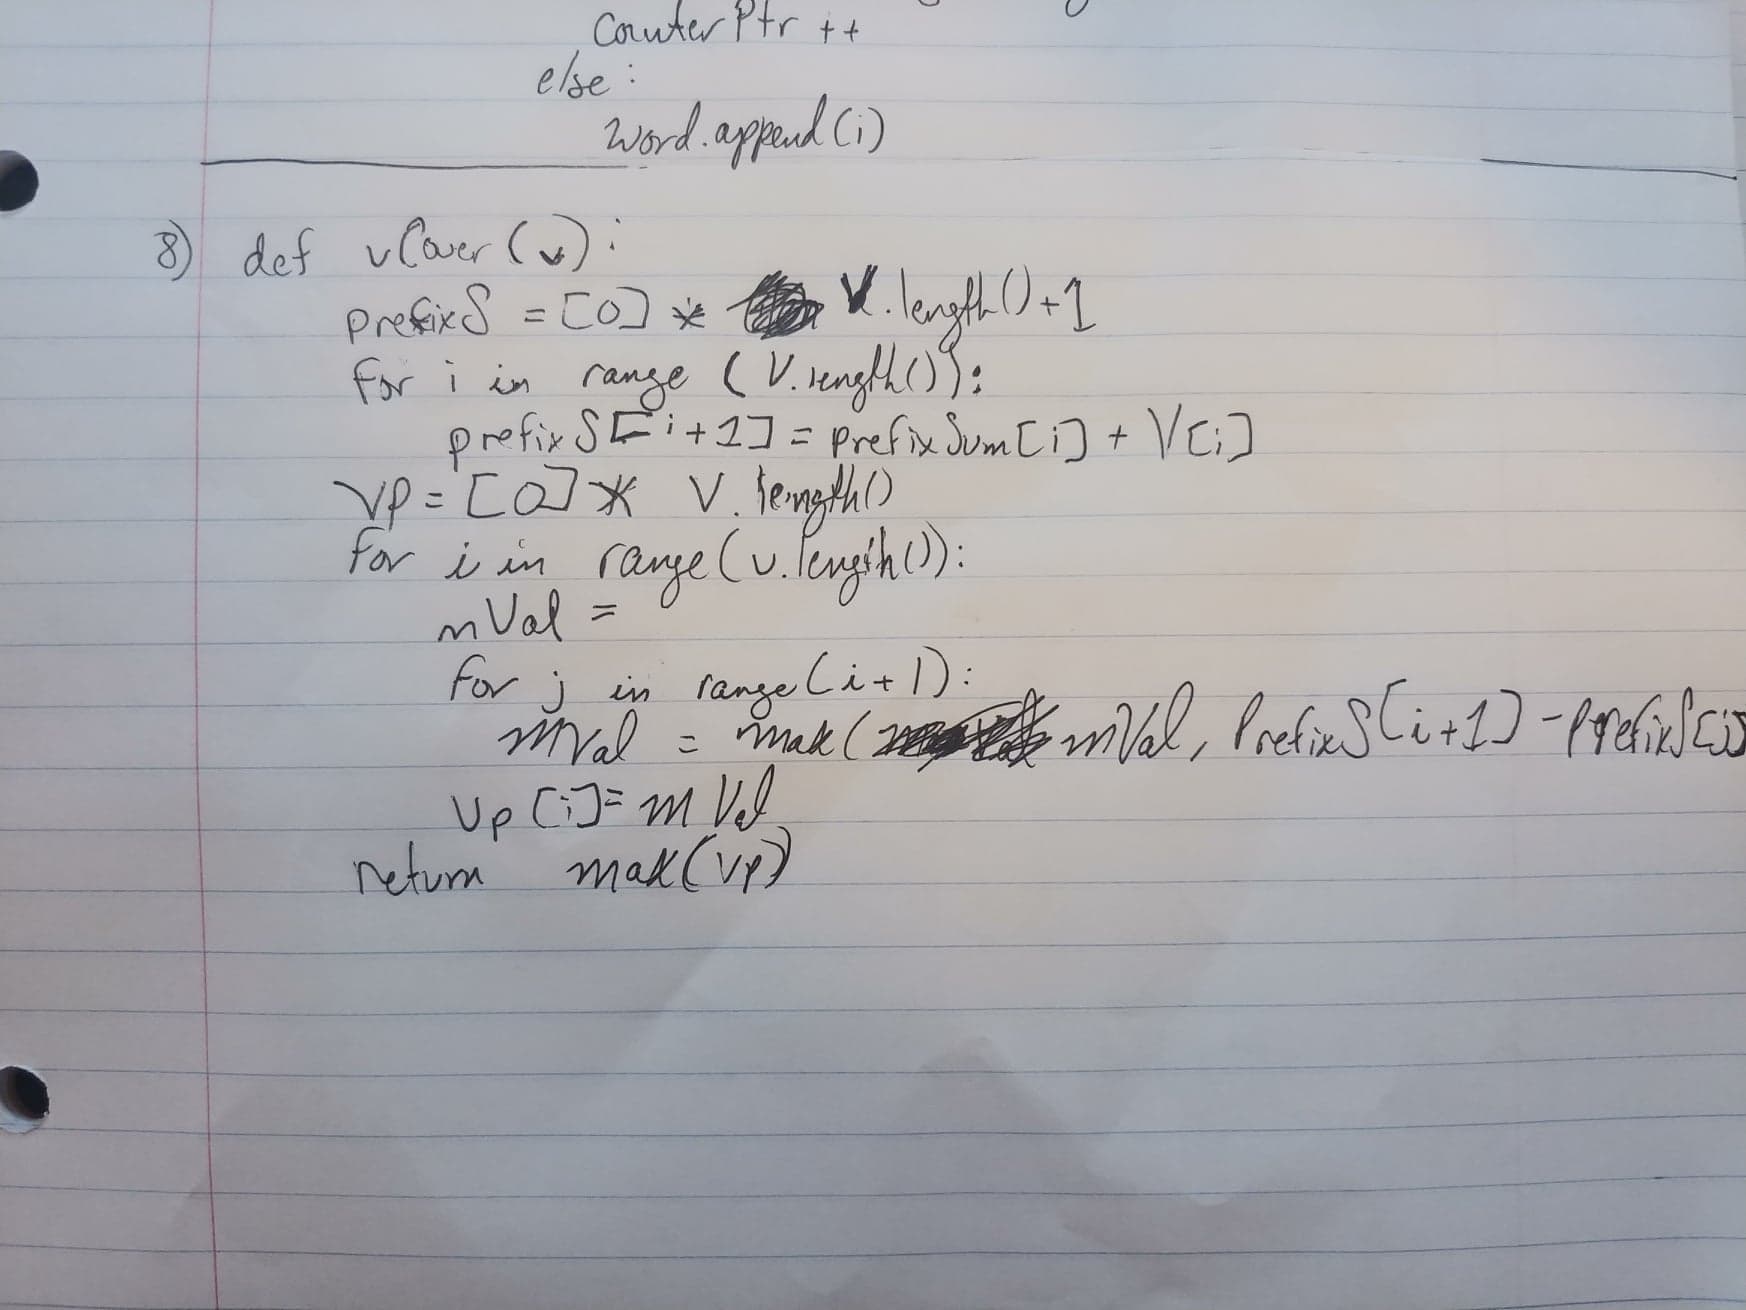 CounterPtr ++
else :
word.append(i)
8) def vCover(v):
prefixS = [0] * V.length()+1
for i in range (V.length()):
prefixS[i+1] = prefixSum[i] + V[i]
VP = [0] * V.length()
for i in range(v.length()):
mVal =
for j in range(i+1):
mVal = max( mVal, PrefixS[i+1] - PrefixS[j]
Vp[i] = mVal
return max(vp)